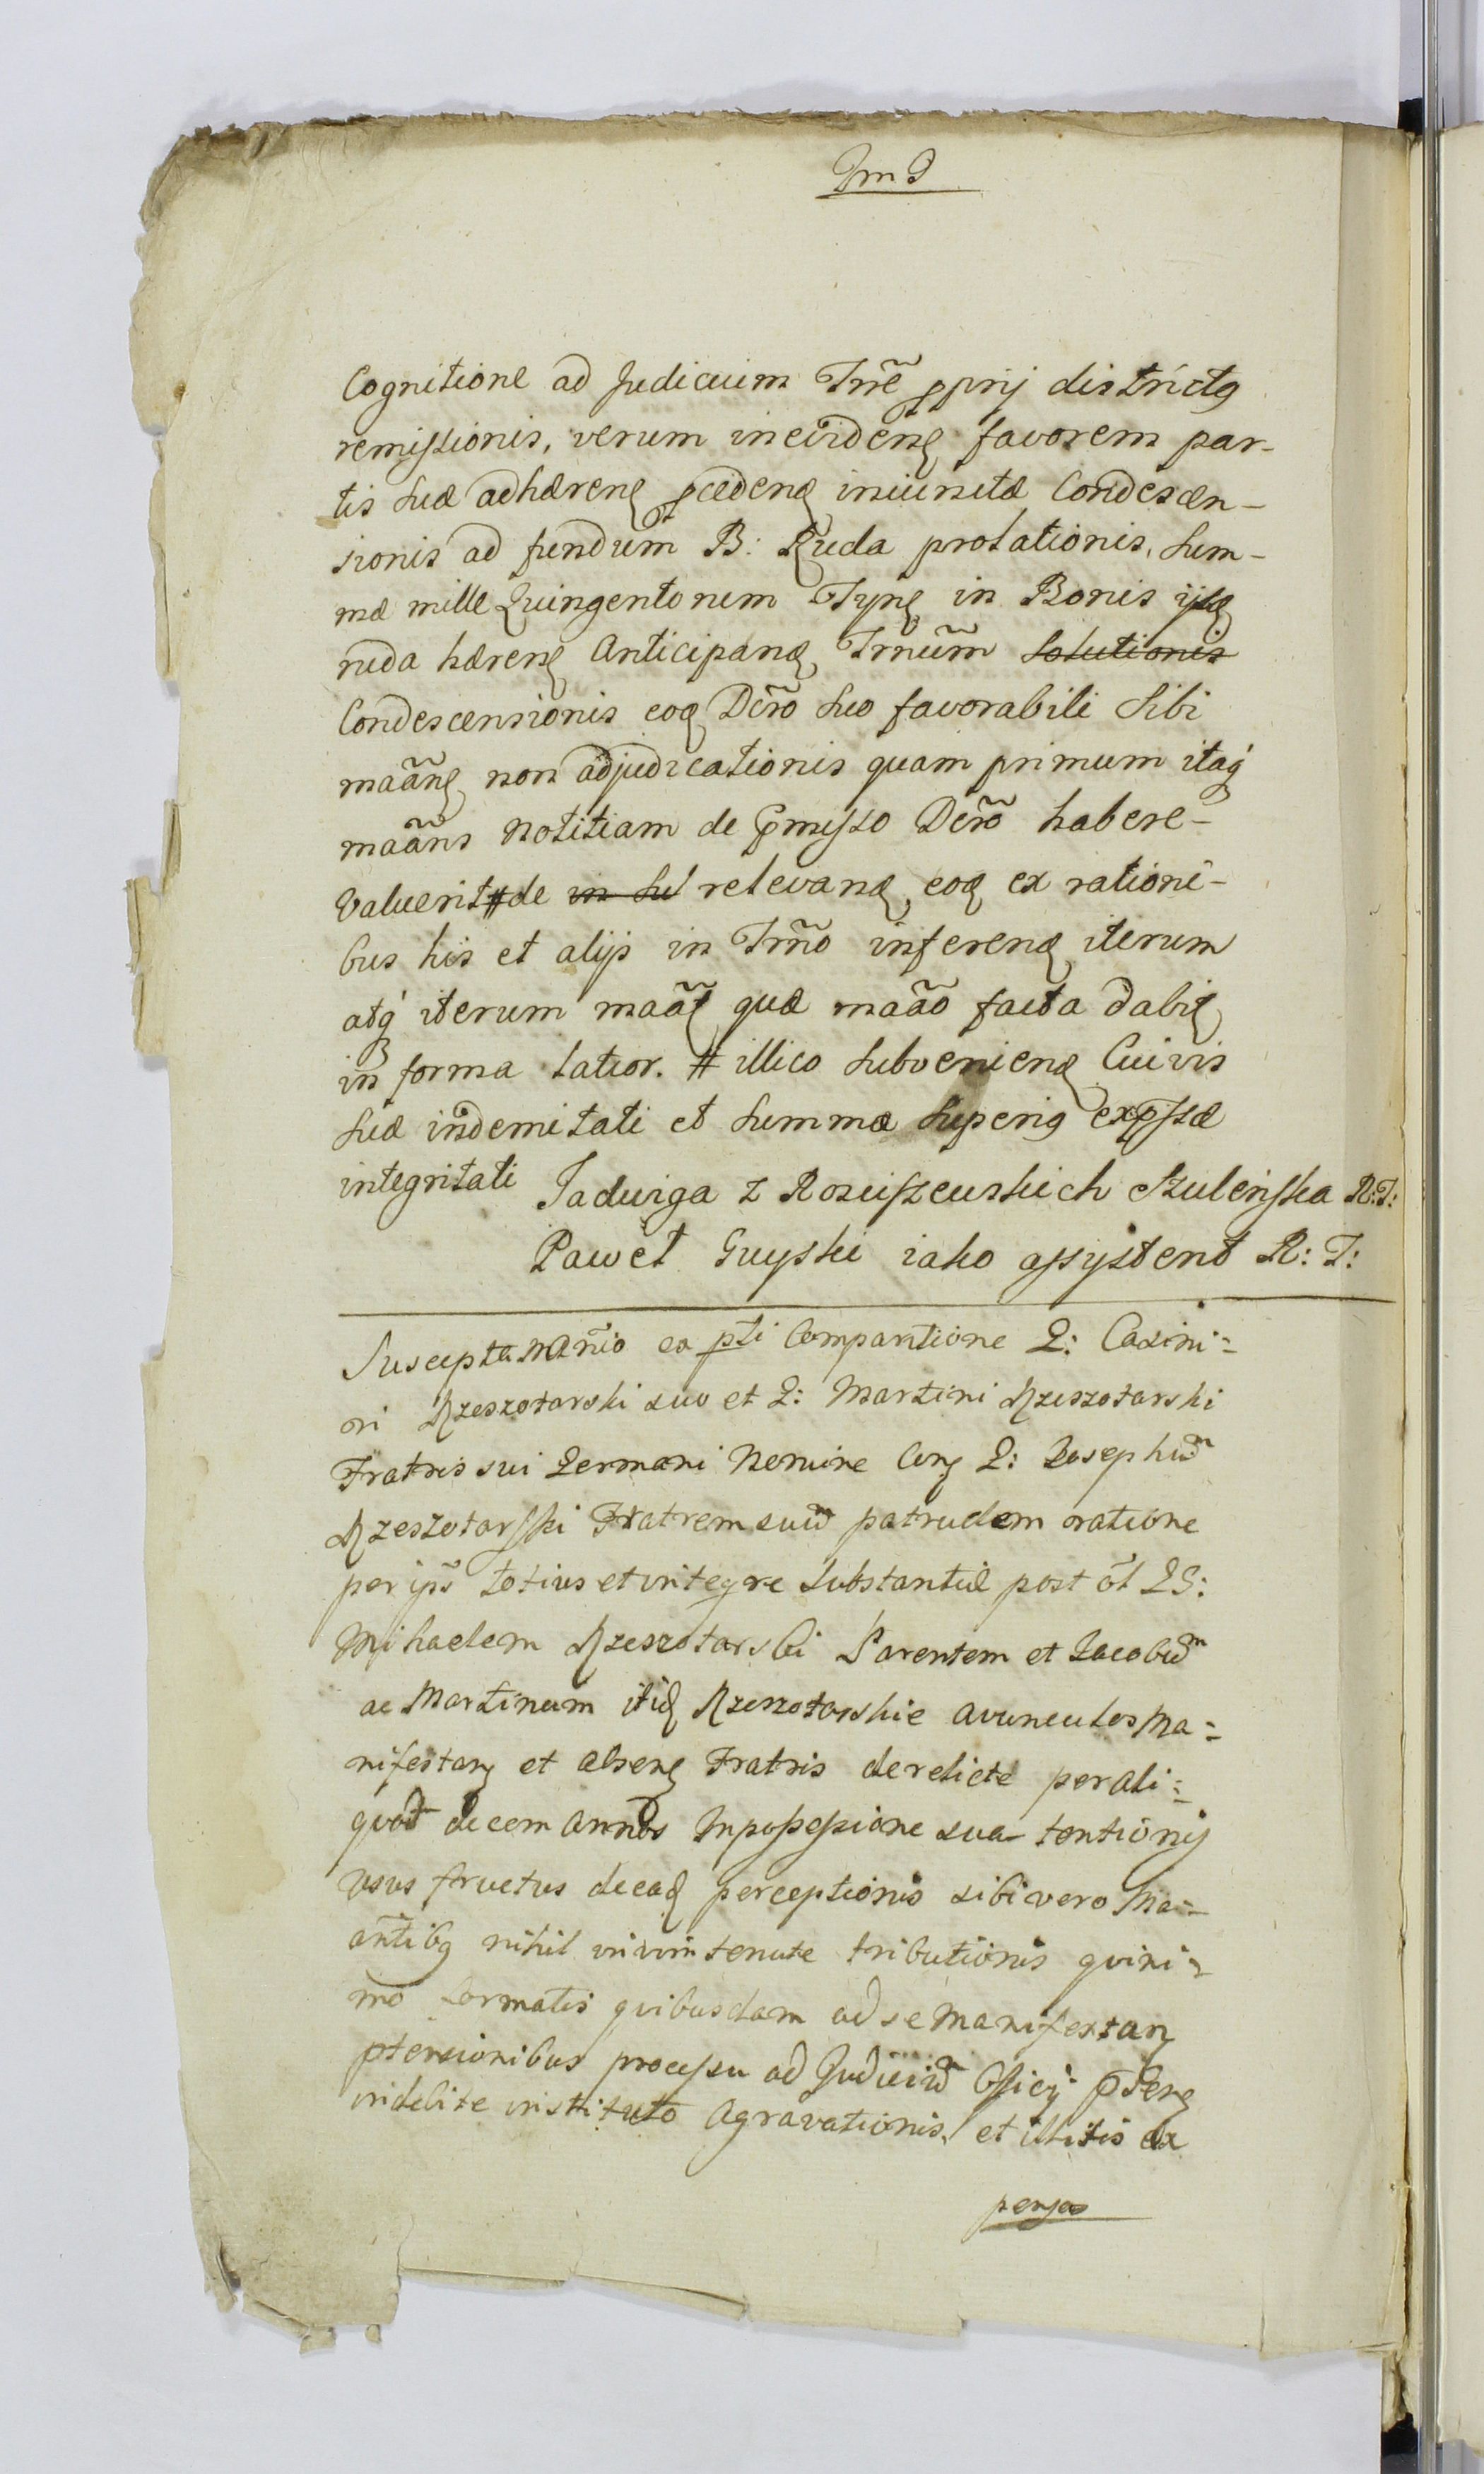 Jm J
Cognitione ad Judicium Trre pprij districtq
remissionis, verum in evidenq favorem par-
tis suæ adhærenq pcedenq iniunctæ Condescen-
sionis ad fundum B: Ruda prolationis, Sum-
mæ mille Quingentorum Tynq in Bonis ijsq
ruda hærenq Anticipanq Trnum Solutionis
Condescensionis eoq Dcro suo favorabili sibi
maãnq non adjudicationis quam primum itaq
maãns notitiam de pmisso Dcro habere-
valuerit # de in sul relevanq, eoq ex rationi-
bus his et alijs in Trño inferenq iterum
atq iterum maãt quæ maão facta dabit
in forma latior. # illico subvenienq Cuivis
suæ indemitati et summæ superiq expssæ
integritati Jadwiga z Rosciszewskich Szulenska R:J:
Paweł Guyski iako assystent R: J:
Suscepta mañio ea pti Comparitione G: Casimi=
ri Rzeszotarski suo et G: Martini Rzeszotarski
Fratris sui Germani Nomine Conq G: Josephum
Rzeszotarski Fratrem suum patruelem ratione
per ips totius et integre substantiæ post ol GG:
Mihaelem Rzeszotarski Parentem et Jacobum
ac Martinum itiq Rzeszotarskie avunculos Ma=
nifestanq et absenq Fratris derelicte per ali=
quot decem annos Inpossessione sua tentionis
usus fructus de eaq perceptionis sibi vero Ma=
antibq nihil unium tenute tributionis quini=
mo formatis quibusdam ad se Manifestanq
ptensionibus processu ad Judicium Officij pdenq
indebite instituto Agravationis, et illitis ex
pensas